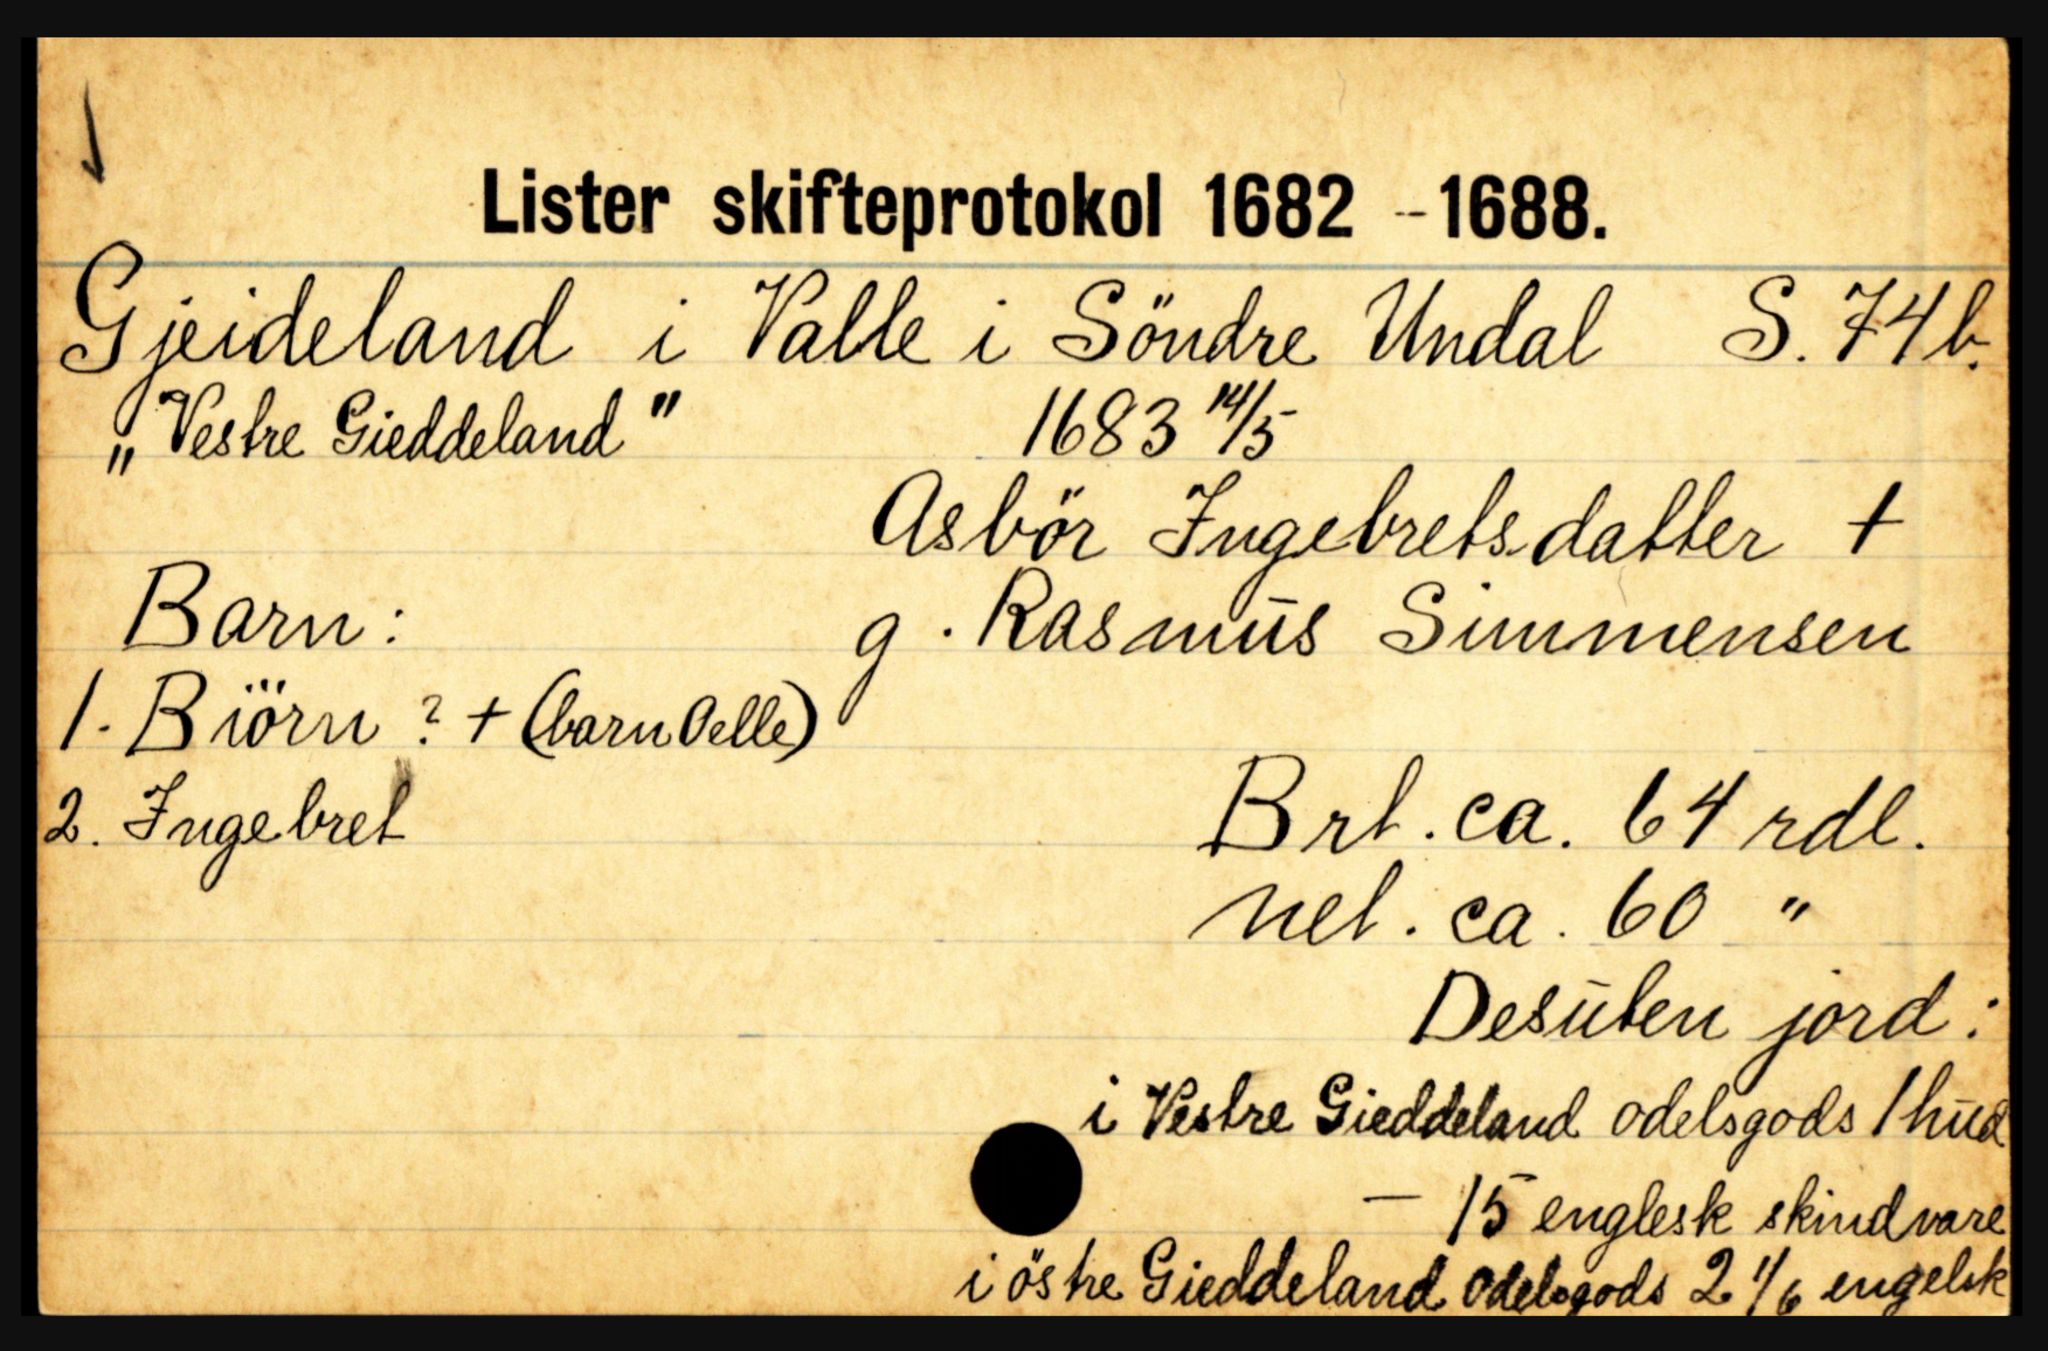 Lister skifteprotokol 1682 -- 1688.
Gjeideland i Valle i Söndre Undal S. 74b.
„Vestre Gieddeland" 1683 14/5
Asbör Ingebretsdatter +
Barn: g. Rasmus Simmensen
1. Biörn ? + (barn Oelle)
2. Ingebret Brt. ca. 64 rdl.
net. ca. 60 "
Desuten jord:
i Vestre Gieddeland odelsgods 1 hud
— 15 englesk skindvare
i östre Gieddeland odelsgods 2 1/6 engelsk